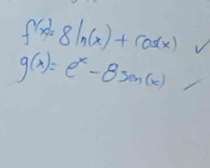 f'(x)= 8 ln(x) + cos(x) ✓
g(x)= eˣ - 8 sen(x)